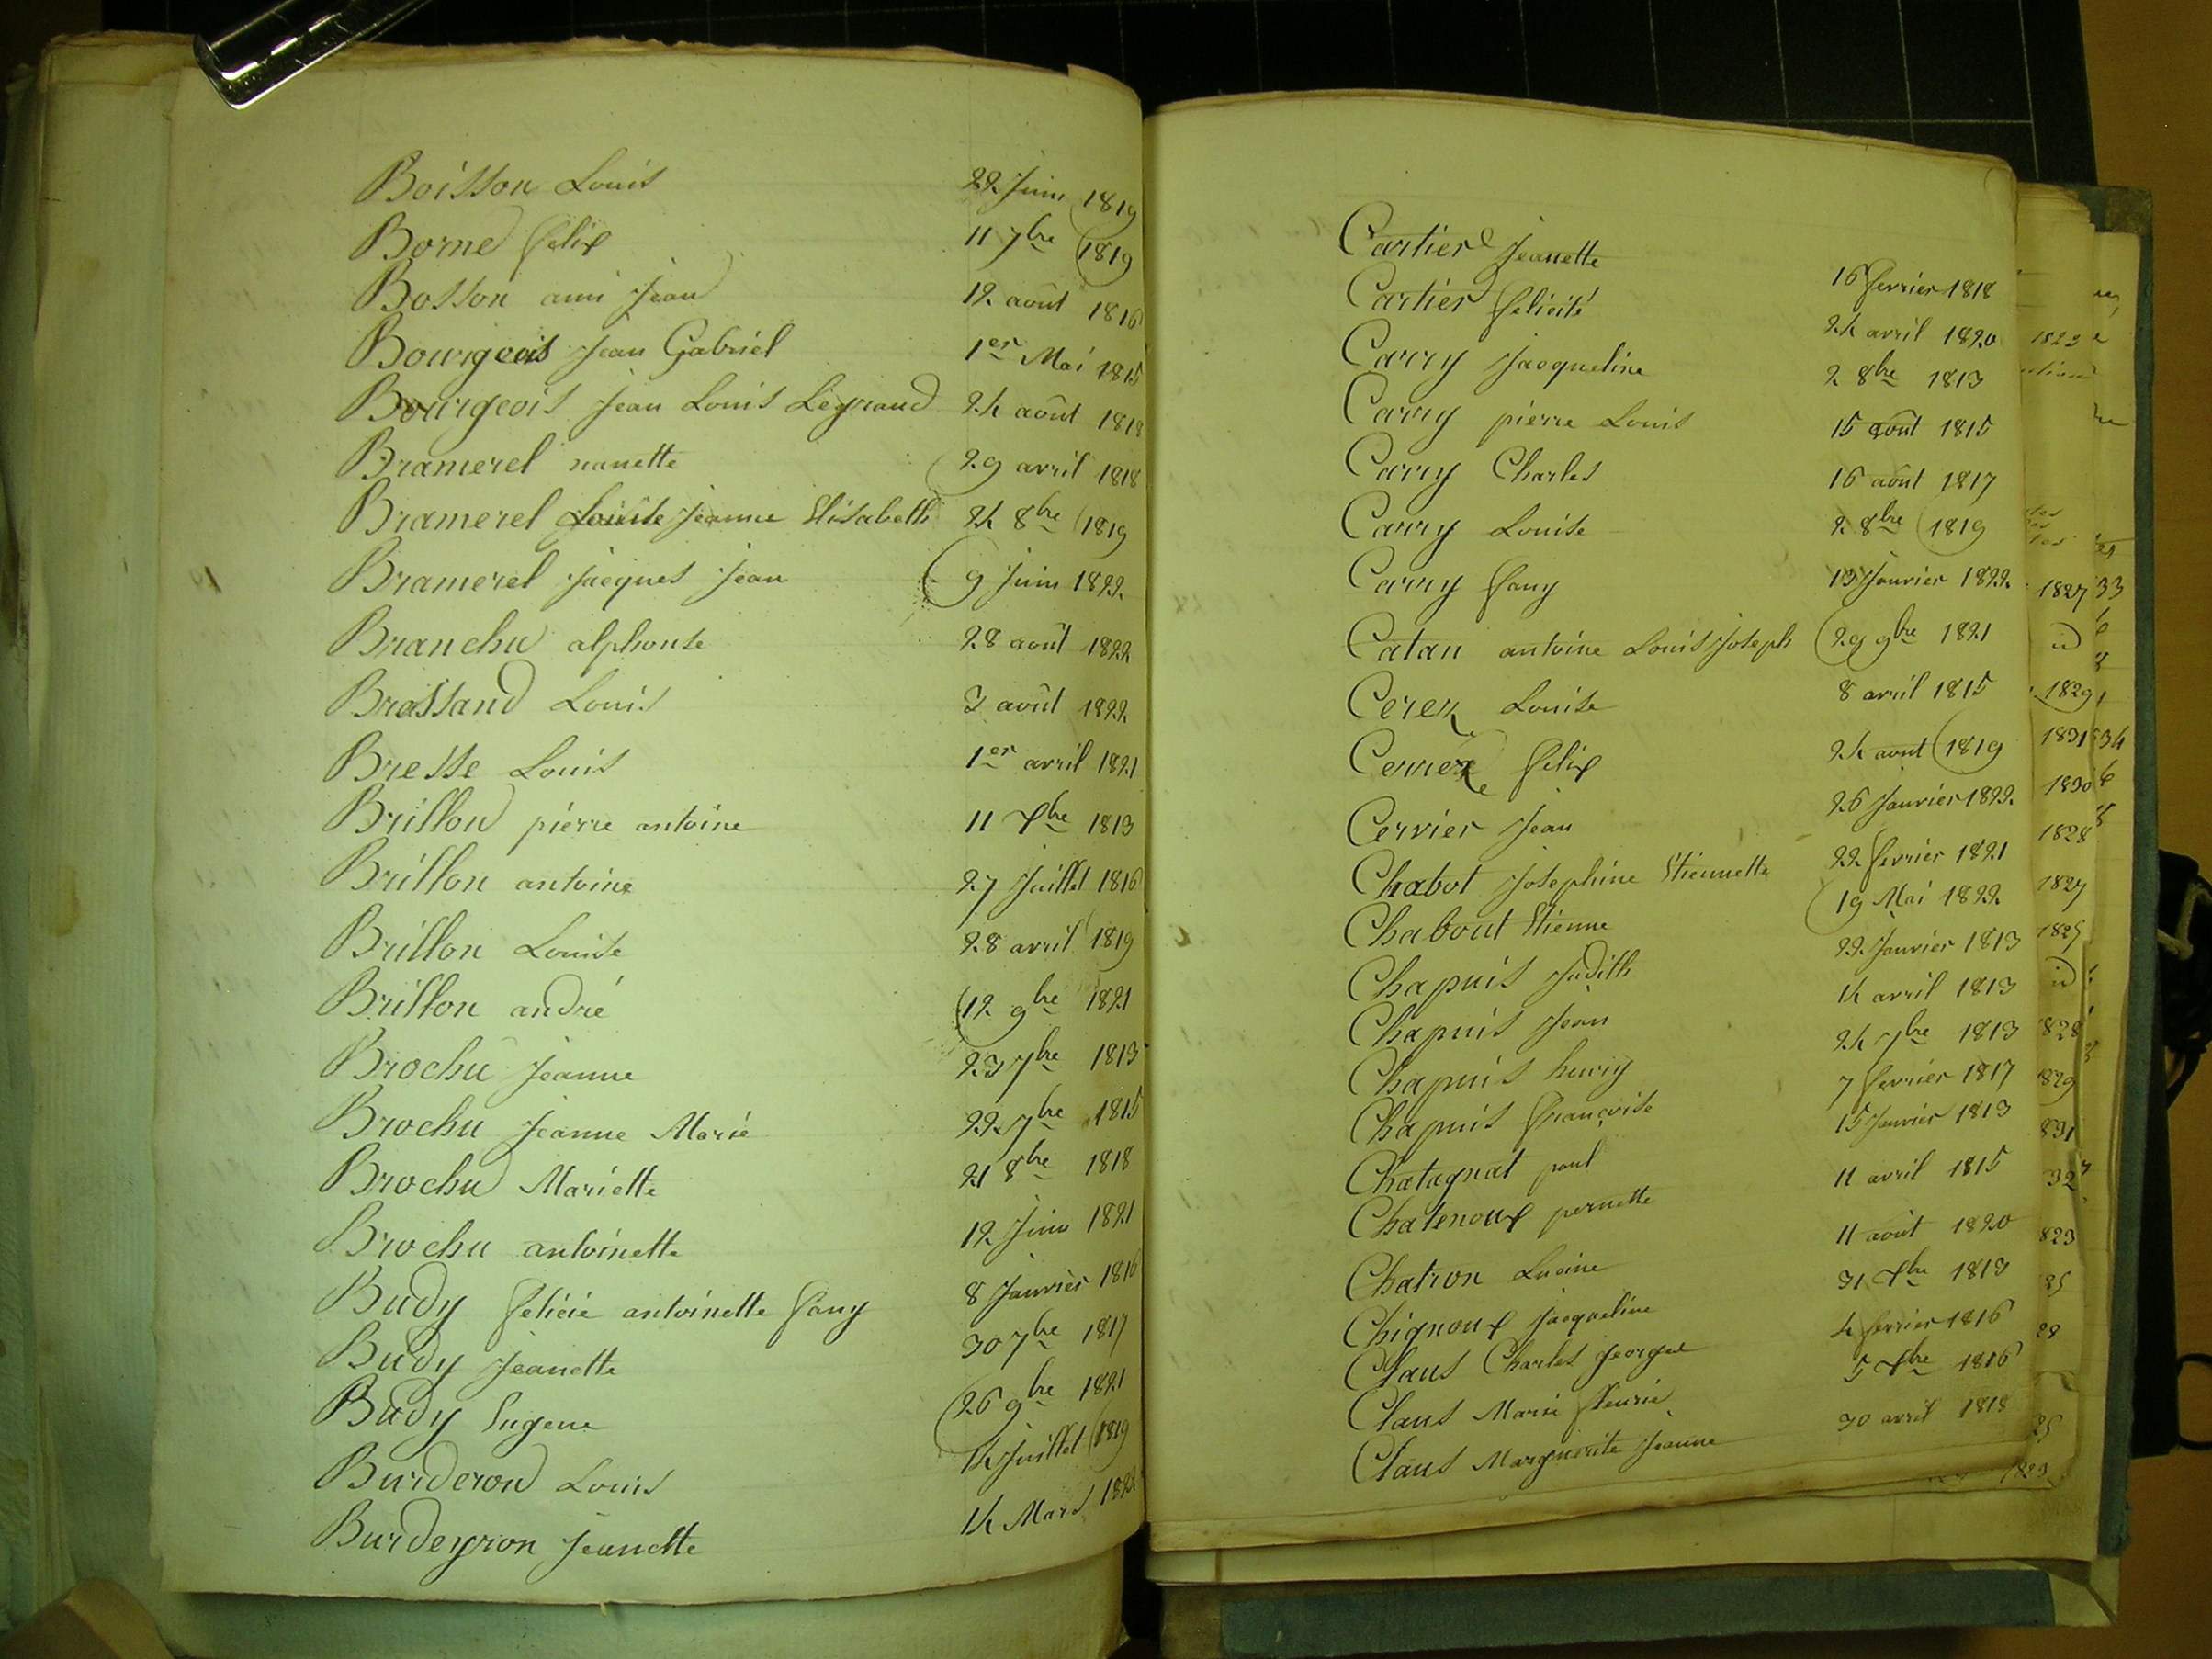 Boisson Louis 22 Juin 1819
Borne felix 11 7bre 1819
Bosson ami Jean 12 août 1816
Bourgeois Jean Gabriel 1er Mai 1815
Bourgeois Jean Louis Legrand 24 août 1818
Bramerel nanette 29 avril 1818
Bramerel Louise Jeanne Elisabeth 24 8bre 1819
Bramerel Jacques Jean 9 Juin 1822
Branchu alphonse 28 août 1822
Brassand Louis 3 août 1822
Bresse Louis 1er avril 1821
Brillon pierre antoine 11 Xbre 1813
Brillon antoine 27 Juillet 1816
Brillon Louise 28 avril 1819
Brillon andré 12 9bre 1821
Brochu Jeanne 23 7bre 1813
Brochu Jeanne Marie 22 7bre 1815
Brochu Mariette 21 8bre 1818
Brochu antoinette 12 Juin 1821
Budy felicie antoinette fany 8 Janvier 1816
Budy Jeanette 30 7bre 1817
Budy Eugene 26 9bre 1821
Burderon Louis 14 Juillet 1819
Burdeyron Jeanette 14 Mars 1822
Cartier Jeanette 16 fevrier 1818
Cartier felicité 24 avril 1820
Carry Jacqueline 2 8bre 1813
Carry pierre Louis 15 août 1815
Carry Charles 16 août 1817
Carry Louise 2 8bre 1819
Carry fany 13 Janvier 1822
Catan antoine Louis Joseph 29 9bre 1821
Cerez Louise 8 avril 1815
Cerrez felix 24 aout 1819
Cervier Jean 26 Janvier 1822
Chabot Josephine Etiennette 22 fevrier 1821
Chabout Etienne 19 Mai 1822
Chapuis Judith 22 Janvier 1813
Chapuis Jean 14 avril 1813
Chapuis henry 24 7bre 1813
Chapuis françoise 7 fevrier 1817
Chatagnat paul 15 Janvier 1813
Chatenoux pernette 11 avril 1815
Chatron Lucine 11 août 1820
Chignoux Jacqueline 31 Xbre 1813
Claus Charles george 4 fevrier 1816
Claus Marie fleurie 5 Xbre 1816
Claus Marguerite Jeanne 30 avril 1818